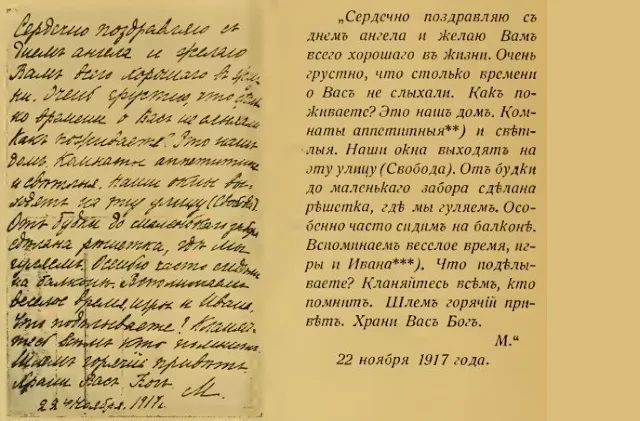 Сердечно поздравляю съ
Днемъ ангела и желаю
Вамъ всего хорошаго въ жиз-
ни. Очень грустно, что столь-
ко времени о Васъ не слыхали
Какъ поживаете? Это нашъ
домъ. Комнаты аппетитныя
и свѣтлыя. Наши окна вы-
ходятъ на эту улицу (Свобода).
Отъ будки до маленькаго забора
сдѣлана рѣшетка, гдѣ мы
гуляемъ. Особено часто сидимъ
на балконѣ. Вспоминаемъ
веселое время, игры и Ивана.
Что подѣлываете? Кланяй-
тесь всѣмъ кто помнитъ.
Шлемъ горячій привѣтъ.
Храни Васъ Богъ. М.
22го Ноября. 1917г.
„Сердечно поздравляю съ
днемъ ангела и желаю Вамъ
всего хорошаго въ жизни. Очень
грустно, что столько времени
о Васъ не слыхали. Какъ по-
живаете? Это нашъ домъ. Ком-
наты аппетитныя**) и свѣт-
лыя. Наши окна выходятъ на
эту улицу (Свобода). Отъ будки
до маленькаго забора сдѣлана
рѣшетка, гдѣ мы гуляемъ. Осо-
бенно часто сидимъ на балконѣ.
Вспоминаемъ веселое время, иг-
ры и Ивана***). Что подѣлы-
ваете? Кланяйтесь всѣмъ, кто
помнитъ. Шлемъ горячій при-
вѣтъ. Храни Васъ Богъ.
М.“
22 ноября 1917 года.